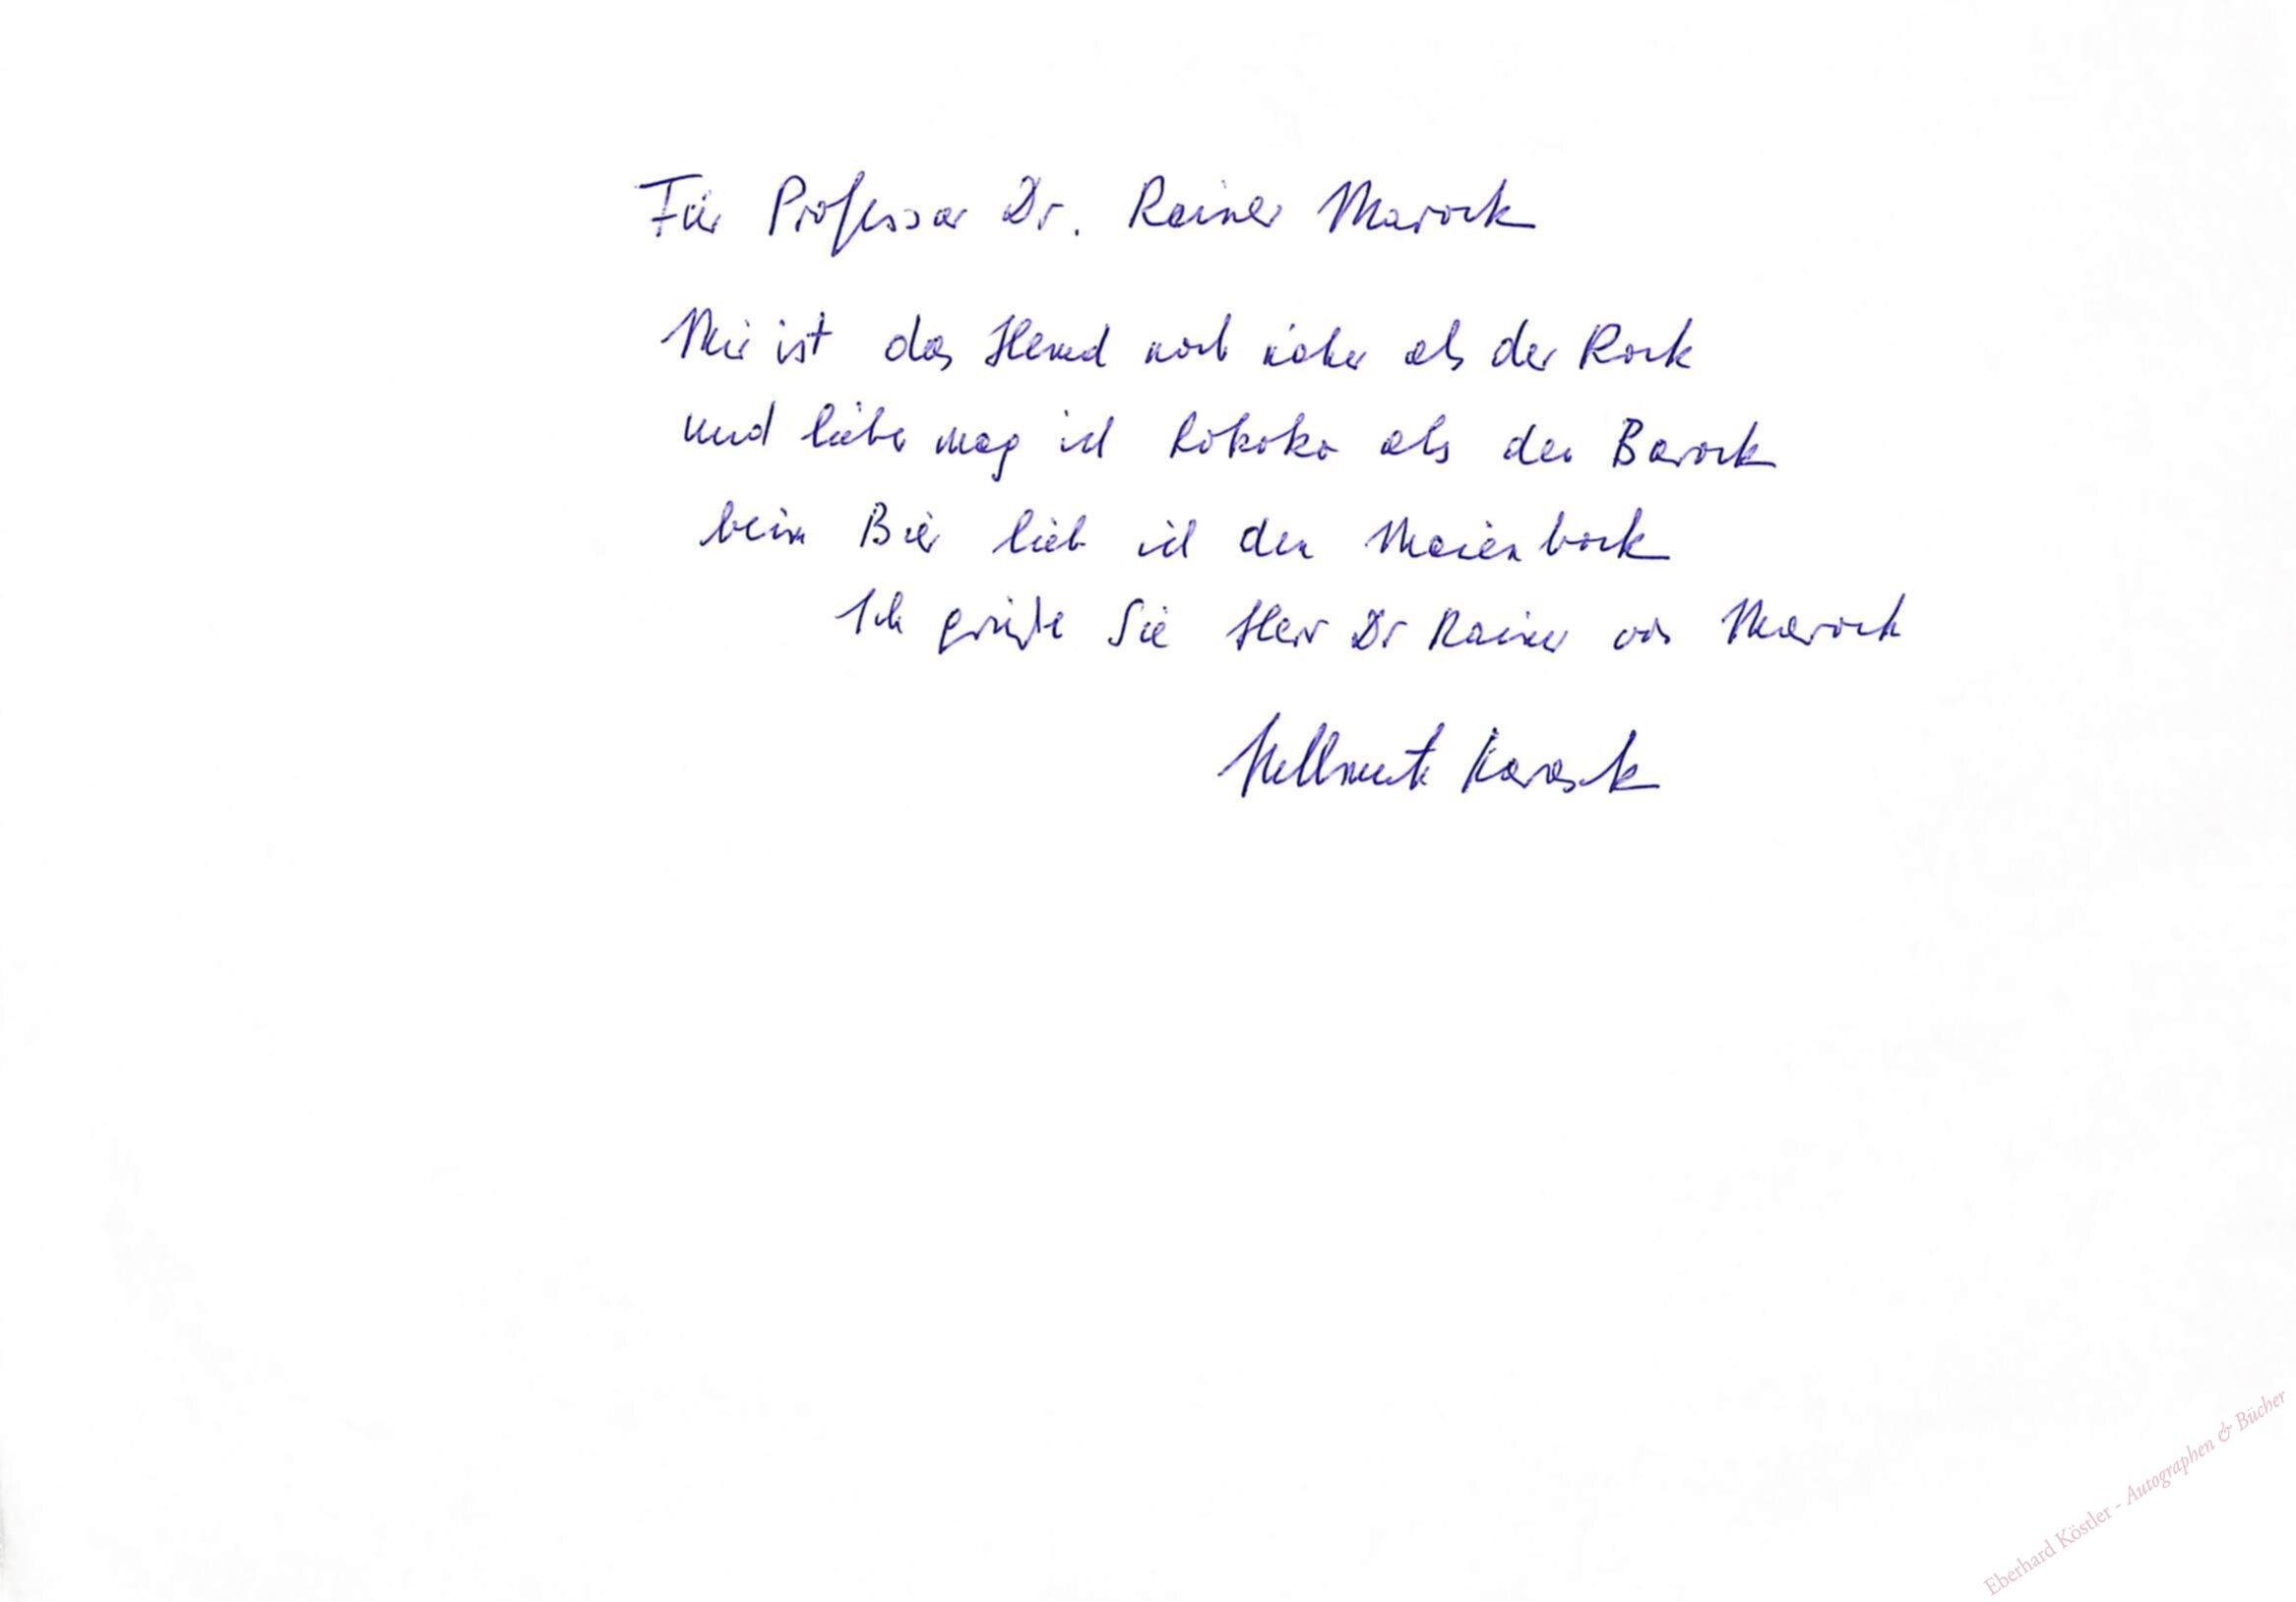 Für Professor Dr. Rainer Marock
Mir ist das Hemd noch näher als der Rock
und lieber mag ich Rokoko als den Barock
beim Bier lieb ich den Maienbock
Ich grüße Sie Herr Dr Rainer von Marock
Hellmuth Karasek
Eberhard Köstler - Autographen & Bücher